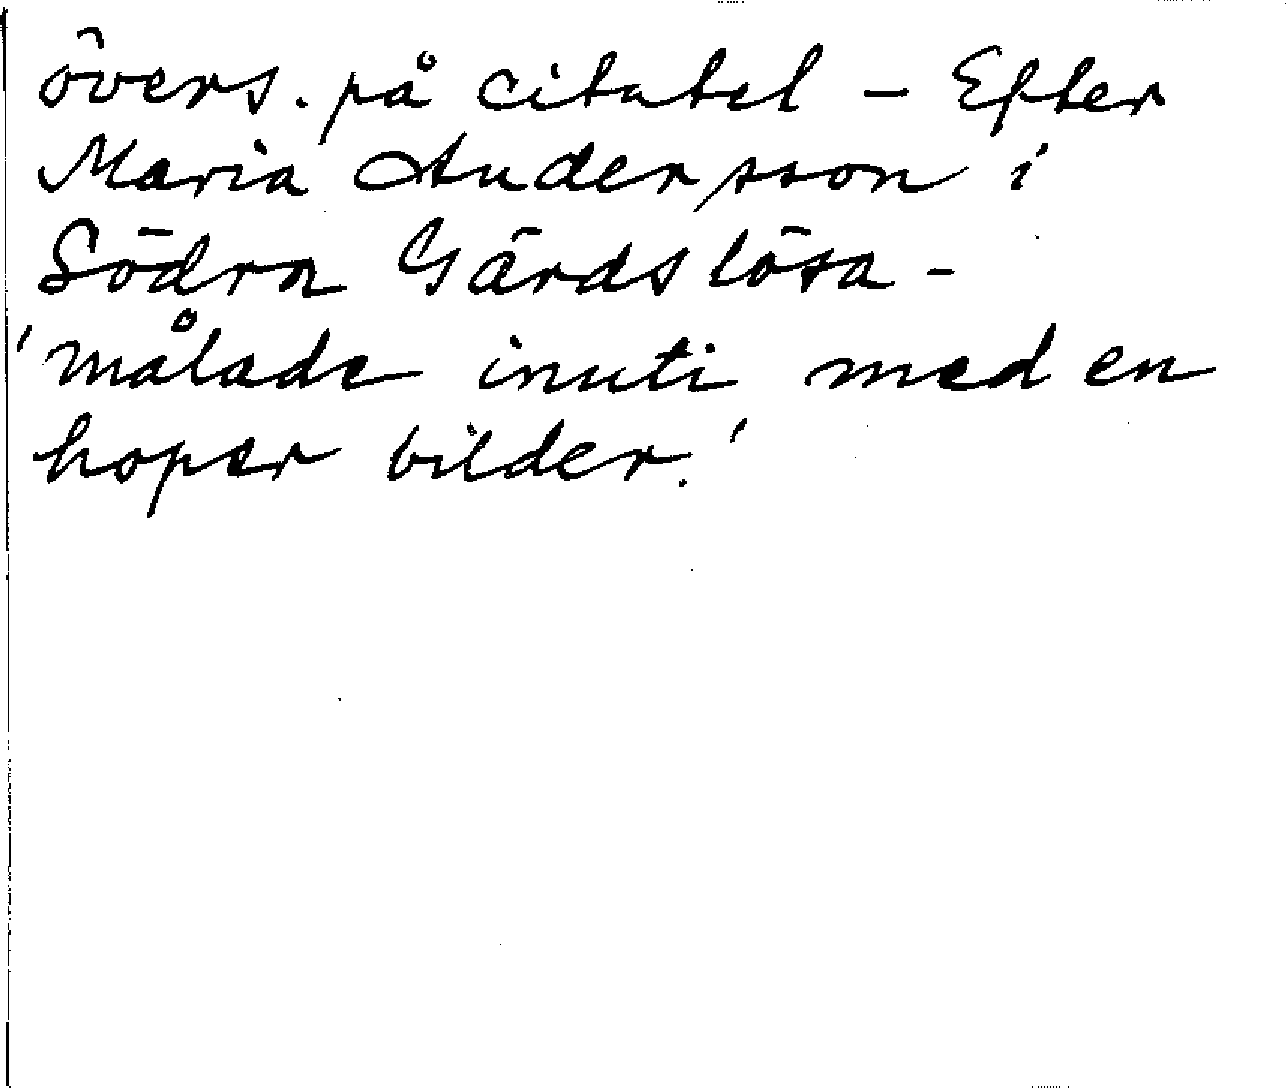 övers. på citatet - Efter
Maria Andersson i
Södra Gärdslösa -
'målade inuti med en
hoper bilder.'